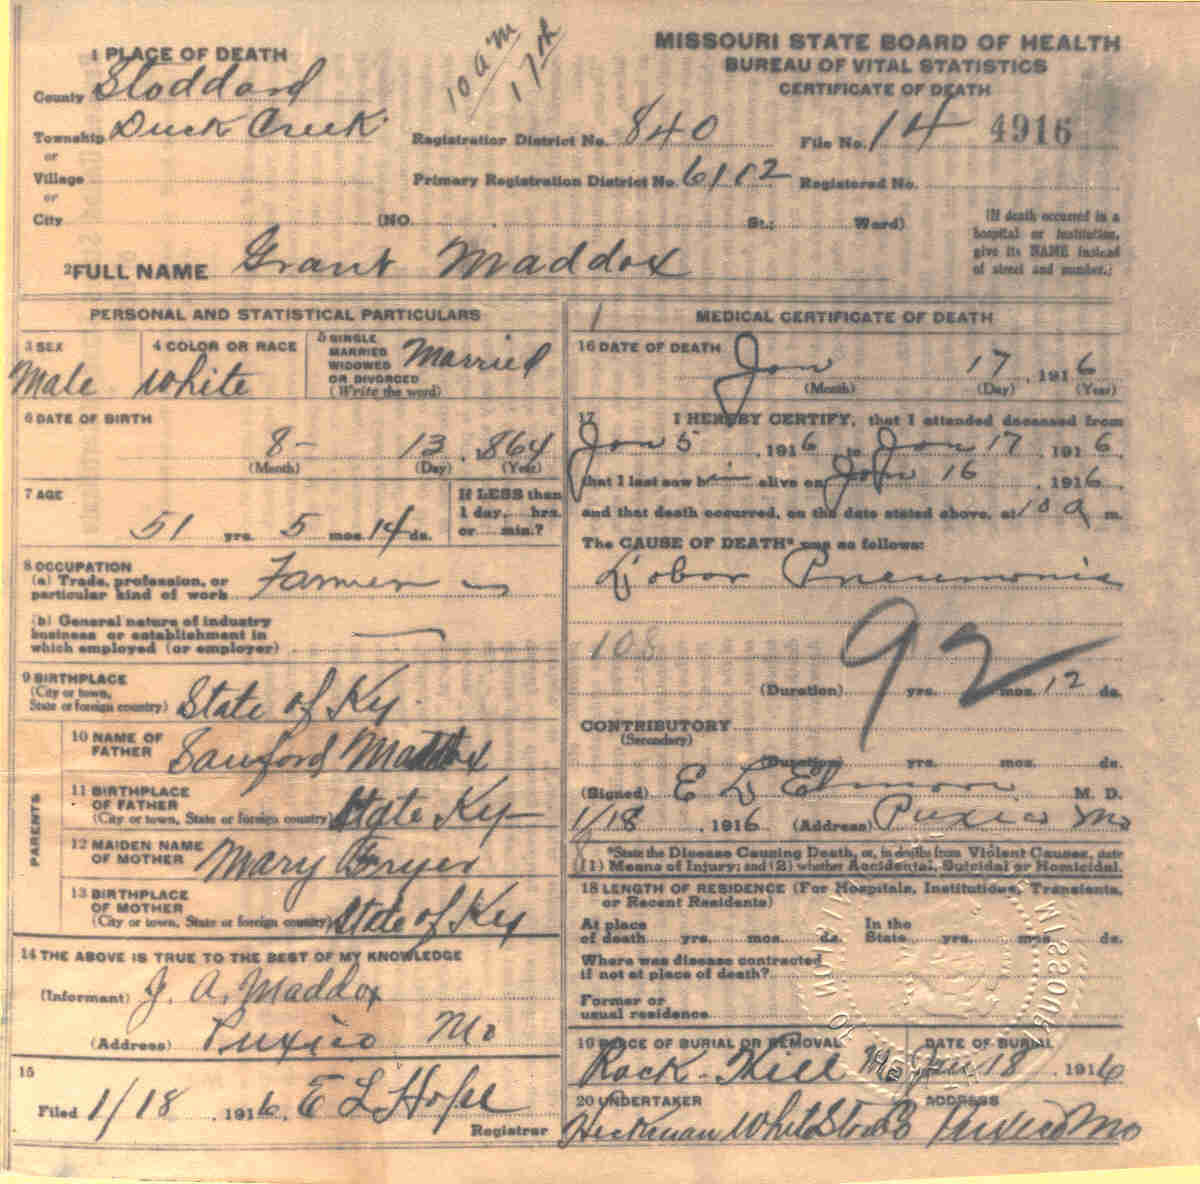 10 a m
17th
MISSOURI STATE BOARD OF HEALTH
BUREAU OF VITAL STATISTICS
CERTIFICATE OF DEATH
1 PLACE OF DEATH
County Stoddard
Township Duck Creek Registration District No. 840 File No. 14 4916
or
Village Primary Registration District No. 6112 Registered No.
or
City (NO. St.; Ward)
(If death occurred in a
hospital or institution,
give its NAME instead
of street and number.)
2 FULL NAME Grant Maddox
PERSONAL AND STATISTICAL PARTICULARS
3 SEX Male
4 COLOR OR RACE White
5 SINGLE
MARRIED
WIDOWED
OR DIVORCED
(Write the word)
Married
6 DATE OF BIRTH
8- 13, 1864
(Month) (Day) (Year)
7 AGE
51 yrs. 5 mos. 14 ds.
If LESS than
1 day, hrs.
or min.?
8 OCCUPATION
(a) Trade, profession, or
particular kind of work Farmer
(b) General nature of industry
business or establishment in
which employed (or employer)
9 BIRTHPLACE
(City or town,
State or foreign country) State of Ky.
PARENTS
10 NAME OF
FATHER Sanford Maddox
11 BIRTHPLACE
OF FATHER
(City or town, State or foreign country) State Ky
12 MAIDEN NAME
OF MOTHER Mary Fryer
13 BIRTHPLACE
OF MOTHER
(City or town, State or foreign country) State of Ky
14 THE ABOVE IS TRUE TO THE BEST OF MY KNOWLEDGE
(Informant) J. A. Maddox
(Address) Puxico Mo
15
Filed 1/18, 1916, E L
Registrar
1 MEDICAL CERTIFICATE OF DEATH
16 DATE OF DEATH
Jan 17, 1916
(Month) (Day) (Year)
17 I HEREBY CERTIFY, that I attended deceased from
Jan 5, 1916 to Jan 17, 1916,
that I last saw him alive on Jan 16, 1916,
and that death occurred, on the date stated above, at 10 a m.
The CAUSE OF DEATH* was as follows:
Lobar Pneumonia
108
92
(Duration) yrs. mos. 12 ds.
CONTRIBUTORY
(Secondary)
(Duration) yrs. mos. ds.
(Signed) E L M. D.
1/18, 1916 (Address) Puxico Mo
*State the Disease Causing Death, or, in deaths from Violent Causes, state
(1) Means of Injury; and (2) whether Accidental, Suicidal or Homicidal.
18 LENGTH OF RESIDENCE (For Hospitals, Institutions, Transients,
or Recent Residents)
At place
of death yrs. mos. ds.
In the
State yrs. mos. ds.
Where was disease contracted
if not at place of death?
Former or
usual residence
19 PLACE OF BURIAL OR REMOVAL
Rock Hill
DATE OF BURIAL
Jan 18, 1916
20 UNDERTAKER
Hickman White
ADDRESS
Puxico Mo